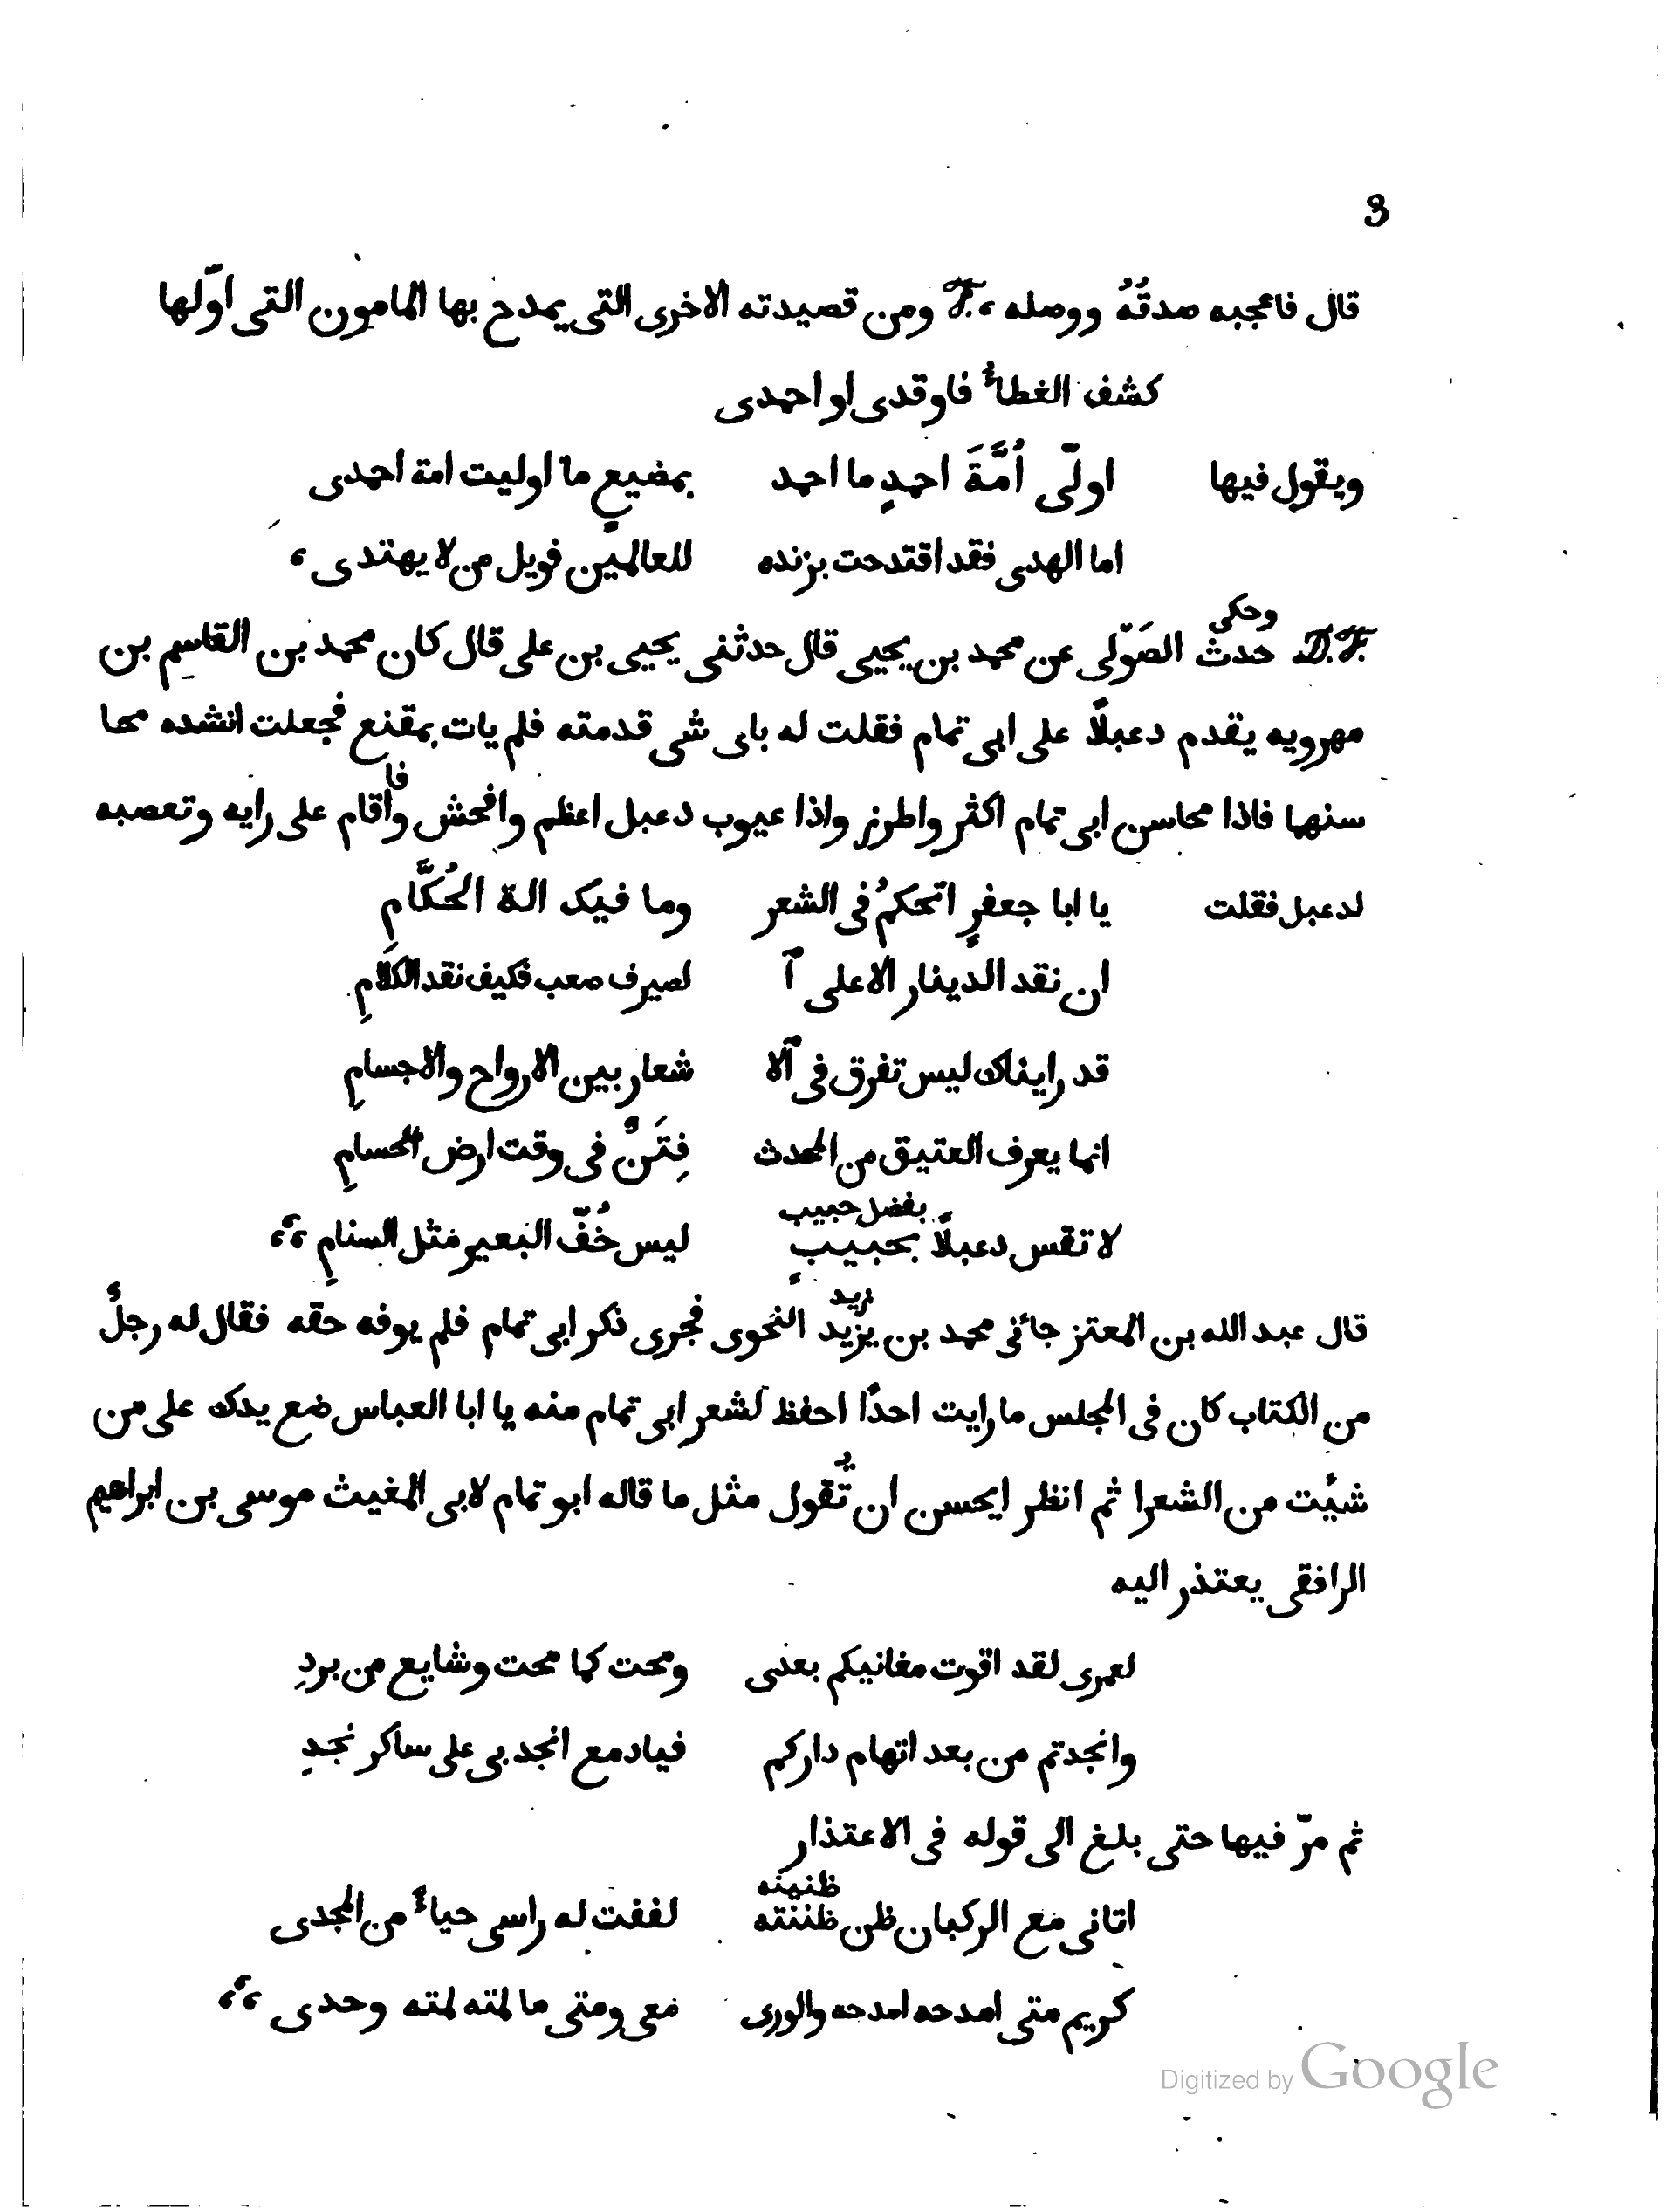 3
قال فاعجبه صدقُهُ ووصله ،، F. ومن قصيدته الاخرى التى يمدح بها المامون التى اوّلها
كشف الغطاءُ فاوقدى او احمدى
ويقول فيها اولّى اُمَّةَ احمدٍ ما احمد بمضيعٍ ما اوليت امة احمدى
اما الهدى فقد اقتدحت بزنده للعالمين فويل من لا يهتدى ،
وحكى
D.F. حدث الصَوّلى عن محمد بن يحيى قال حدثنى يحيى بن على قال كان محمد بن القاسِم بن
مهرويه يقدم دعبلاً على ابى تمام فقلت له باى شى قدمته فلم يات بمقنع فجعلت انشده محا
سنهما فاذا محاسن ابى تمام اكثر واطرز واذا عيوب دعبل اعظم وافحش واقام على رايه وتعصبه
فا
لدعبل فقلت يا ابا جعفرٍ اتحكمُ فى الشعر وما فيك الة الحُكَّامِ
ان نقد الدينار الا على آ لصيرف صعب فكيف نقد الكلامِ
قد رايناك ليس تفرق فى آلا شعار بين الارواح والاجسامِ
انما يعرف العتيق من المحدث فِتَنٌ فى وقت ارض الحسامِ
بفضل حبيب
لا تقس دعبلاً بحبيبٍ ليس خُفّ البعير مثل السنامِ ،،
زيد
قال عبد الله بن المعتز جائى محمد بن يزيد النحوى فجرى ذكر ابى تمام فلم يوفه حقه فقال له رجلٌ
من الكتاب كان فى المجلس ما رايت احدًا احفظ لشعر ابى تمام منه يا ابا العباس ضع يدك على من
شئت من الشعرا ثم انظر ايحسن ان يُقول مثل ما قاله ابو تمام لابى المغيث موسى بن ابراهيم
الرافقى يعتذر اليه
لعمرى لقد اقوت مغانيكم بعدى ومحت كما محت وشايع من بردِ
وانجدتم من بعد اتهام داركم فيادمع انجدبى على ساكر نجدِ
ثم مرّ فيها حتى بلغ الى قوله فى الاعتذار
ظننته
اتانى مع الركبان ظن ظننته لففت له راسى حياءً من المجدى
كريم متى امدحه امدحه والورى معى ومتى ما لمته لمته وحدى ،،
Digitized by Google